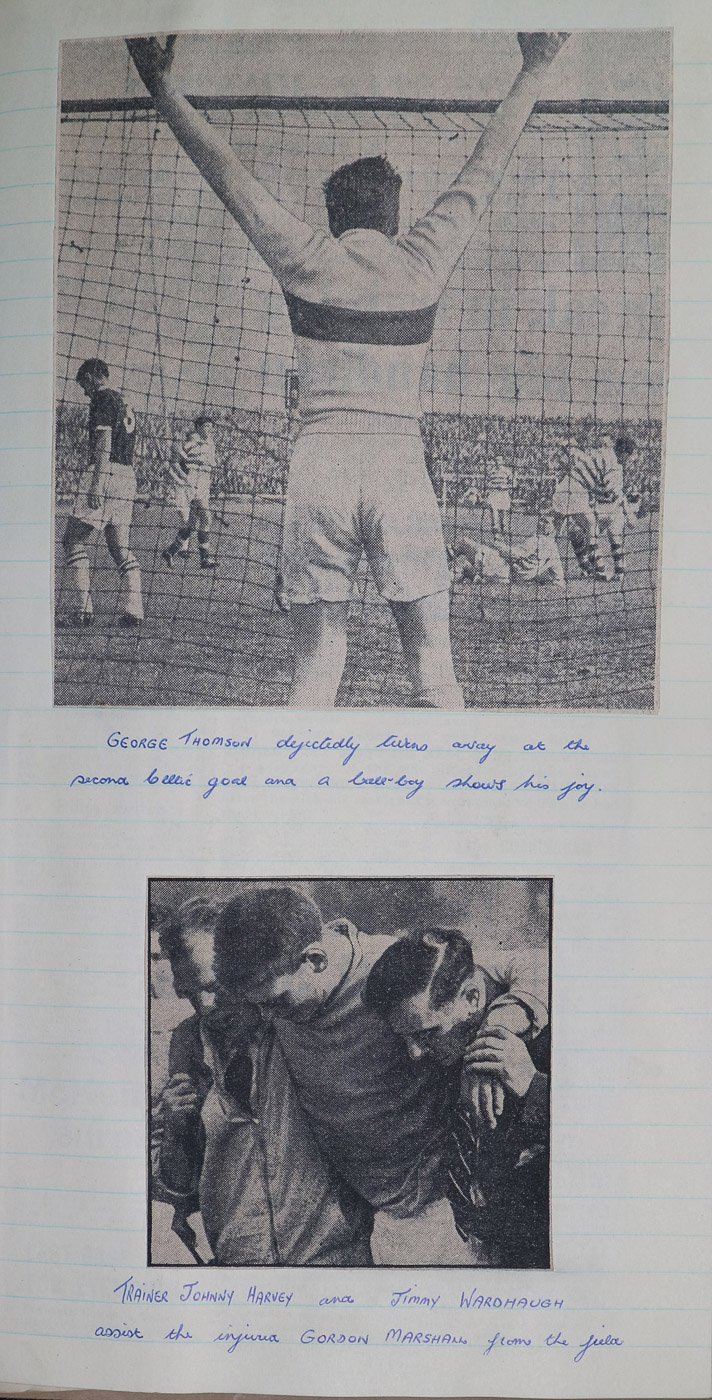 GEORGE THOMSON dejectedly turns away at the
second Celtic goal and a ball-boy shows his joy.
TRAINER JOHNNY HARVEY and JIMMY WARDHAUGH
assist the injured GORDON MARSHALL from the field